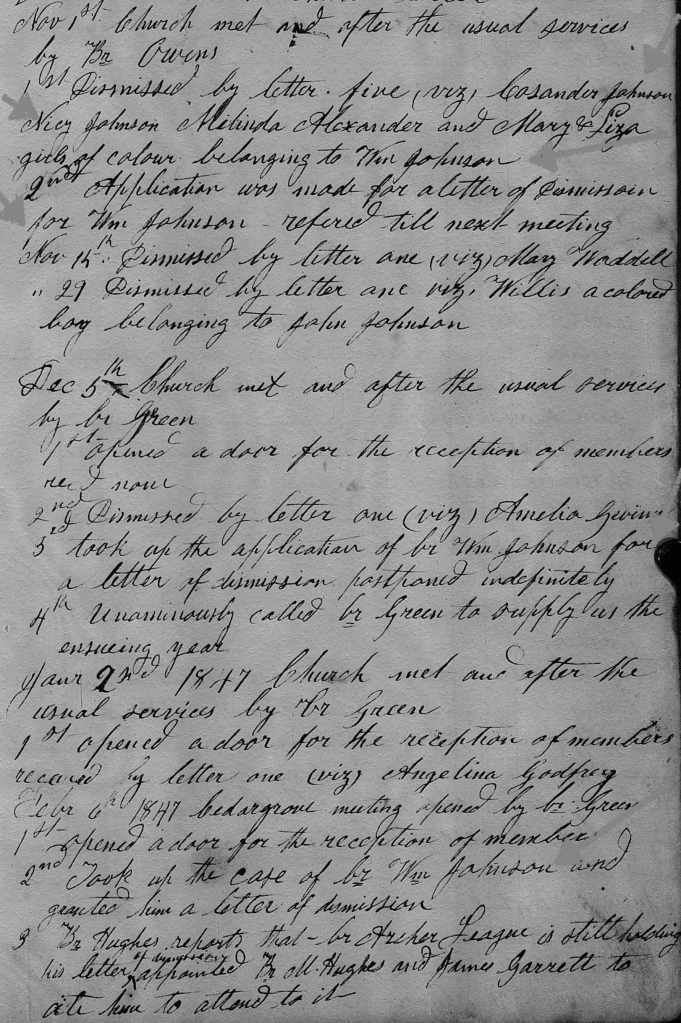 Nov 1st Church met and after the usual services
by Br Owens
1st Dismissed by letter five (viz) Casander Johnson
Nicy Johnson Milinda Alexander and Mary & Liza
girls of colour belonging to Wm Johnson
2nd Application was made for a letter of Dismissoin
for Wm Johnson - refered till next meeting
Nov 15th Dismissed by letter one (viz) Mary Waddell
" 29 Dismissed by letter one viz, Willis a colored
boy belonging to John Johnson
Dec 5th Church met and after the usual services
by br Green
1st opened a door for the reception of members
recd none
2nd Dismissed by letter one (viz) Amelia
3rd took up the application of br Wm Johnson for
a letter of dismission postponed indefinitely
4th Unaminously called br Green to supply us the
ensueing year
Janr 2nd 1847 Church met and after the
usual services by Br Green
1st opened a door for the reception of members
received by letter one (viz) Angelina Godfrey
Febr 6th 1847 cedargrove meeting opened by br Green
1st opened a door for the reception of member
2nd Took up the case of br Wm Johnson and
granted him a letter of dismission
3 Br Hughes reports that - br Archer League is still holding
his letter of dismission appointed Br M. Hughes and James Garrett to
cite him to attend to it